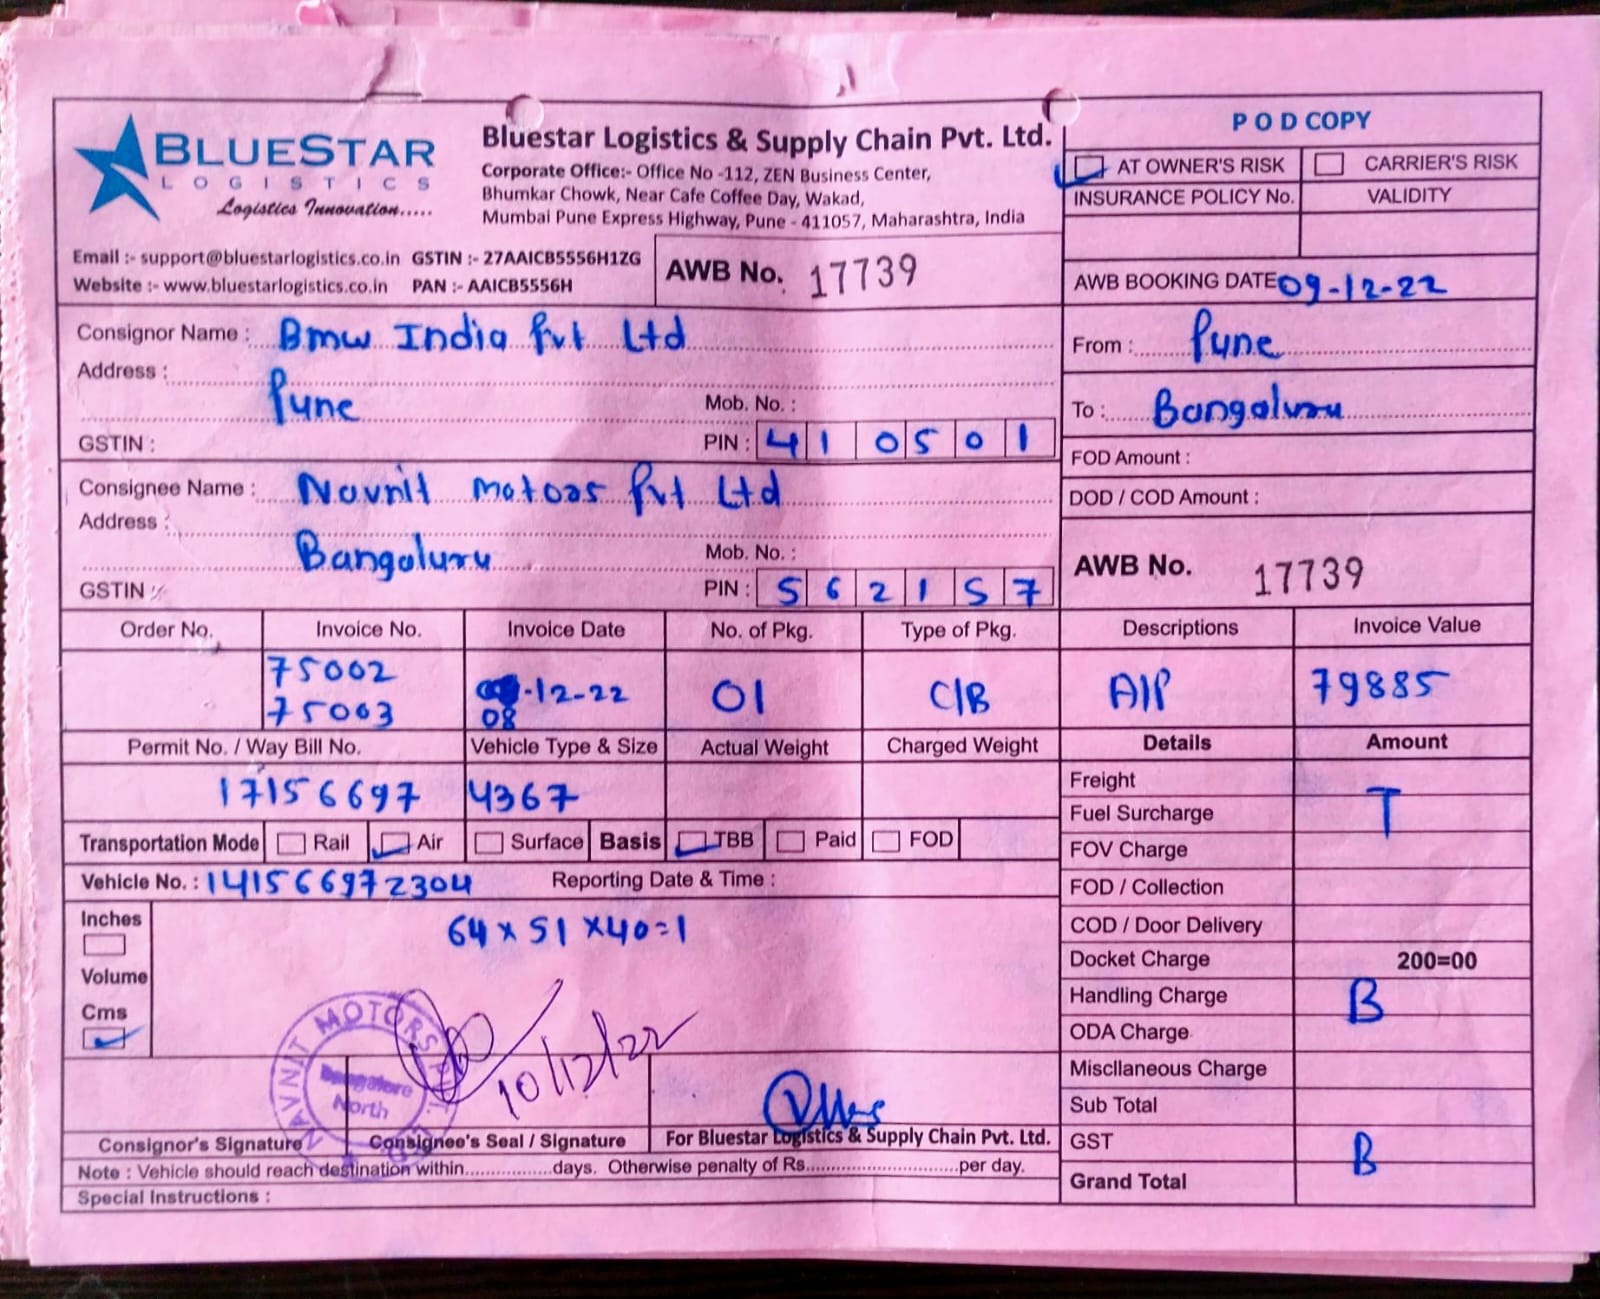 BLUESTAR
LOGISTICS
Logistics Innovation.....
Bluestar Logistics & Supply Chain Pvt. Ltd.
Corporate Office:- Office No -112, ZEN Business Center,
Bhumkar Chowk, Near Cafe Coffee Day, Wakad,
Mumbai Pune Express Highway, Pune - 411057, Maharashtra, India
Email :- support@bluestarlogistics.co.in GSTIN :- 27AAICB5556H1ZG
Website :- www.bluestarlogistics.co.in PAN :- AAICB5556H
AWB No. 17739
POD COPY
AT OWNER'S RISK CARRIER'S RISK
INSURANCE POLICY No. VALIDITY
AWB BOOKING DATE 09-12-22
Consignor Name : Bmw India Pvt Ltd
Address :
Pune Mob. No. :
GSTIN : PIN : 410501
From : Pune
To : Bangaluru
FOD Amount :
DOD / COD Amount :
Consignee Name : Navnit Motors Pvt Ltd
Address :
Bangaluru Mob. No. :
GSTIN : PIN : 562157
AWB No. 17739
Order No. Invoice No. Invoice Date No. of Pkg. Type of Pkg. Descriptions Invoice Value
75002
75003 08-12-22 01 C/B A/P 79885
Permit No. / Way Bill No. Vehicle Type & Size Actual Weight Charged Weight Details Amount
17156697 4367
Transportation Mode Rail Air Surface Basis TBB Paid FOD
Vehicle No. : 141566972304 Reporting Date & Time :
Inches
Volume
Cms
64 x 51 x 40 = 1
Freight
Fuel Surcharge T
FOV Charge
FOD / Collection
COD / Door Delivery
Docket Charge 200=00
Handling Charge B
ODA Charge
Miscllaneous Charge
Sub Total
GST B
Grand Total
NAVNIT MOTORS
Bangalore
North
10/12/22
Consignor's Signature Consignee's Seal / Signature For Bluestar Logistics & Supply Chain Pvt. Ltd.
Note : Vehicle should reach destination within...............days. Otherwise penalty of Rs...........................per day.
Special Instructions :